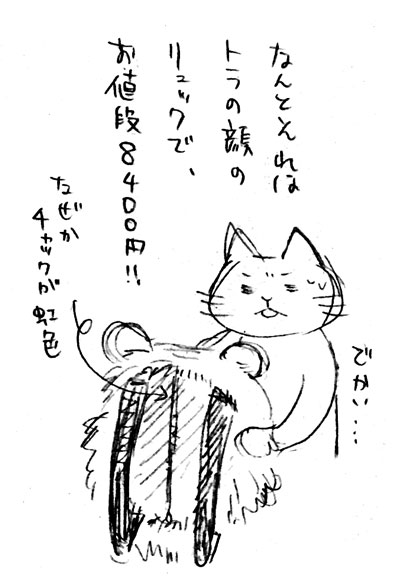 なんとそれは
トラの顔の
リュックで、
お値段8400円!!
なぜか
チャックが虹色
でかい…